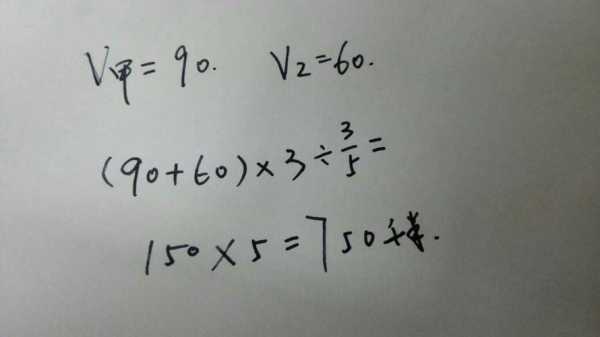 V甲=90. V乙=60.
(90+60)×3÷3/5=
150×5=750